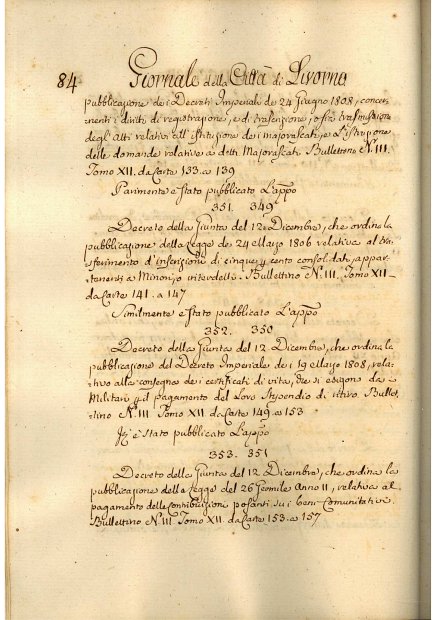 84 Giornale della Città di Livorno
pubblicazione dei Decreti Imperiale de 24 Giugno 1808, concer-
nenti i diritti di registrazione, e di trascrizione, o sia trasmissione
degl' Atti relativi all' istituzione dei majoraschati, e L'istruzione
delle domande relative a detti Majoraschati Bullettino N. III.
Tomo XII. da Carte 133. a 139
Parimente è stato pubblicato L'appo
351. 349
Decreto della Giunta del 12. Dicembre, che ordina la
pubblicazione della Legge de 24 Marzo 1806 relativa al tra-
sferimento d'inscrizioni di cinque p cento consolidati, appar-
tenenti a Minori, o interdetti. Bullettino N. III. Tomo XII
da Carte 141. a 147
Similmente è stato pubblicato L'appo
352. 350
Decreto della Giunta del 12 Dicembre, che ordina la
pubblicazione del Decreto Imperiale de i 19 Marzo 1808, rela-
tivo alla consegna de i certificati di vita, che si esigono da
Militari p il pagamento del Loro Stipendio di ritiro. Bullet-
tino N. III Tomo XII. da Carte 149. a 153
è stato pubblicato L'appo
353. 351
Decreto della Giunta del 12 Dicembre, che ordina la
pubblicazione della Legge del 26 Germile Anno 11, relativa al
pagamento delle Contribuzioni posanti su i beni Comunitativi.
Bullettino N. III Tomo XII. da Carte 153. a 157